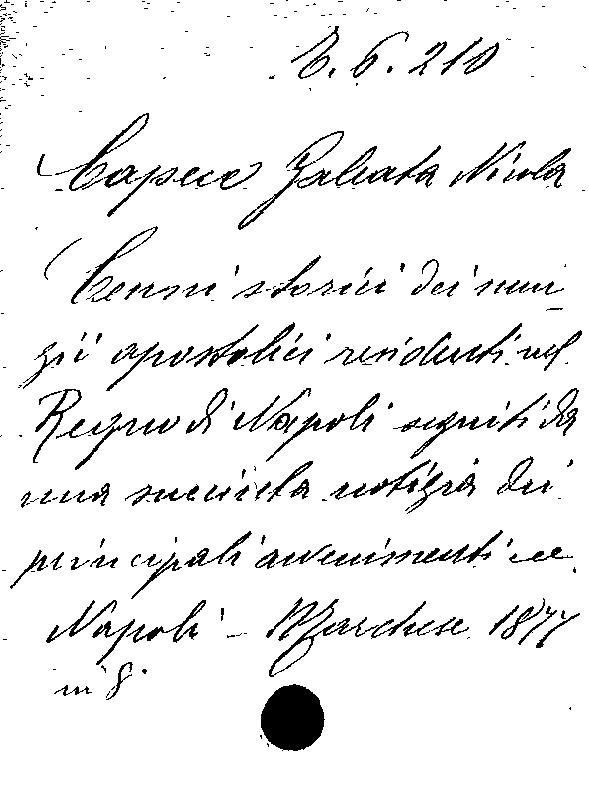 B. 6. 210
Capece Galeata Nicola
Cenni storici dei nun-
zii apostolici residenti nel
Regno di Napoli seguiti da
una succinta notizia dei
principali avvenimenti ecc.
Napoli - Marchese 1877
in 8°